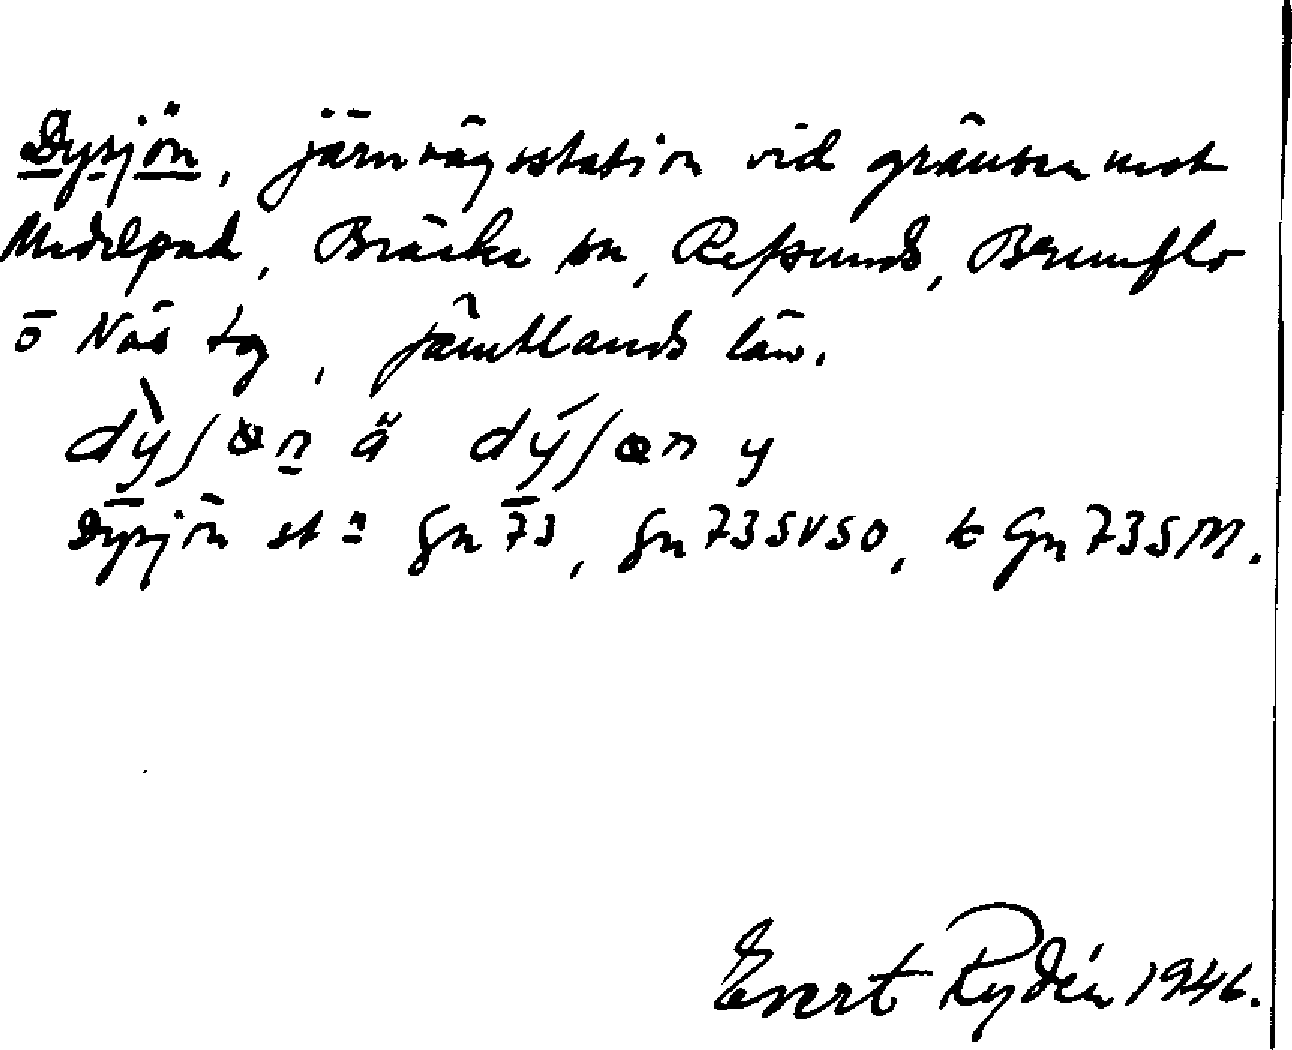 Dysjön, järnvägsstation vid gränsen mot
Medelpad, Bräcke sn, Refsunds, Brunflo
o Näs tg, Jämtlands län.
Dysjön st = Gn 73, Gn 73 SVSO, t Gn 73 SM.
Evert Rydén 1946.